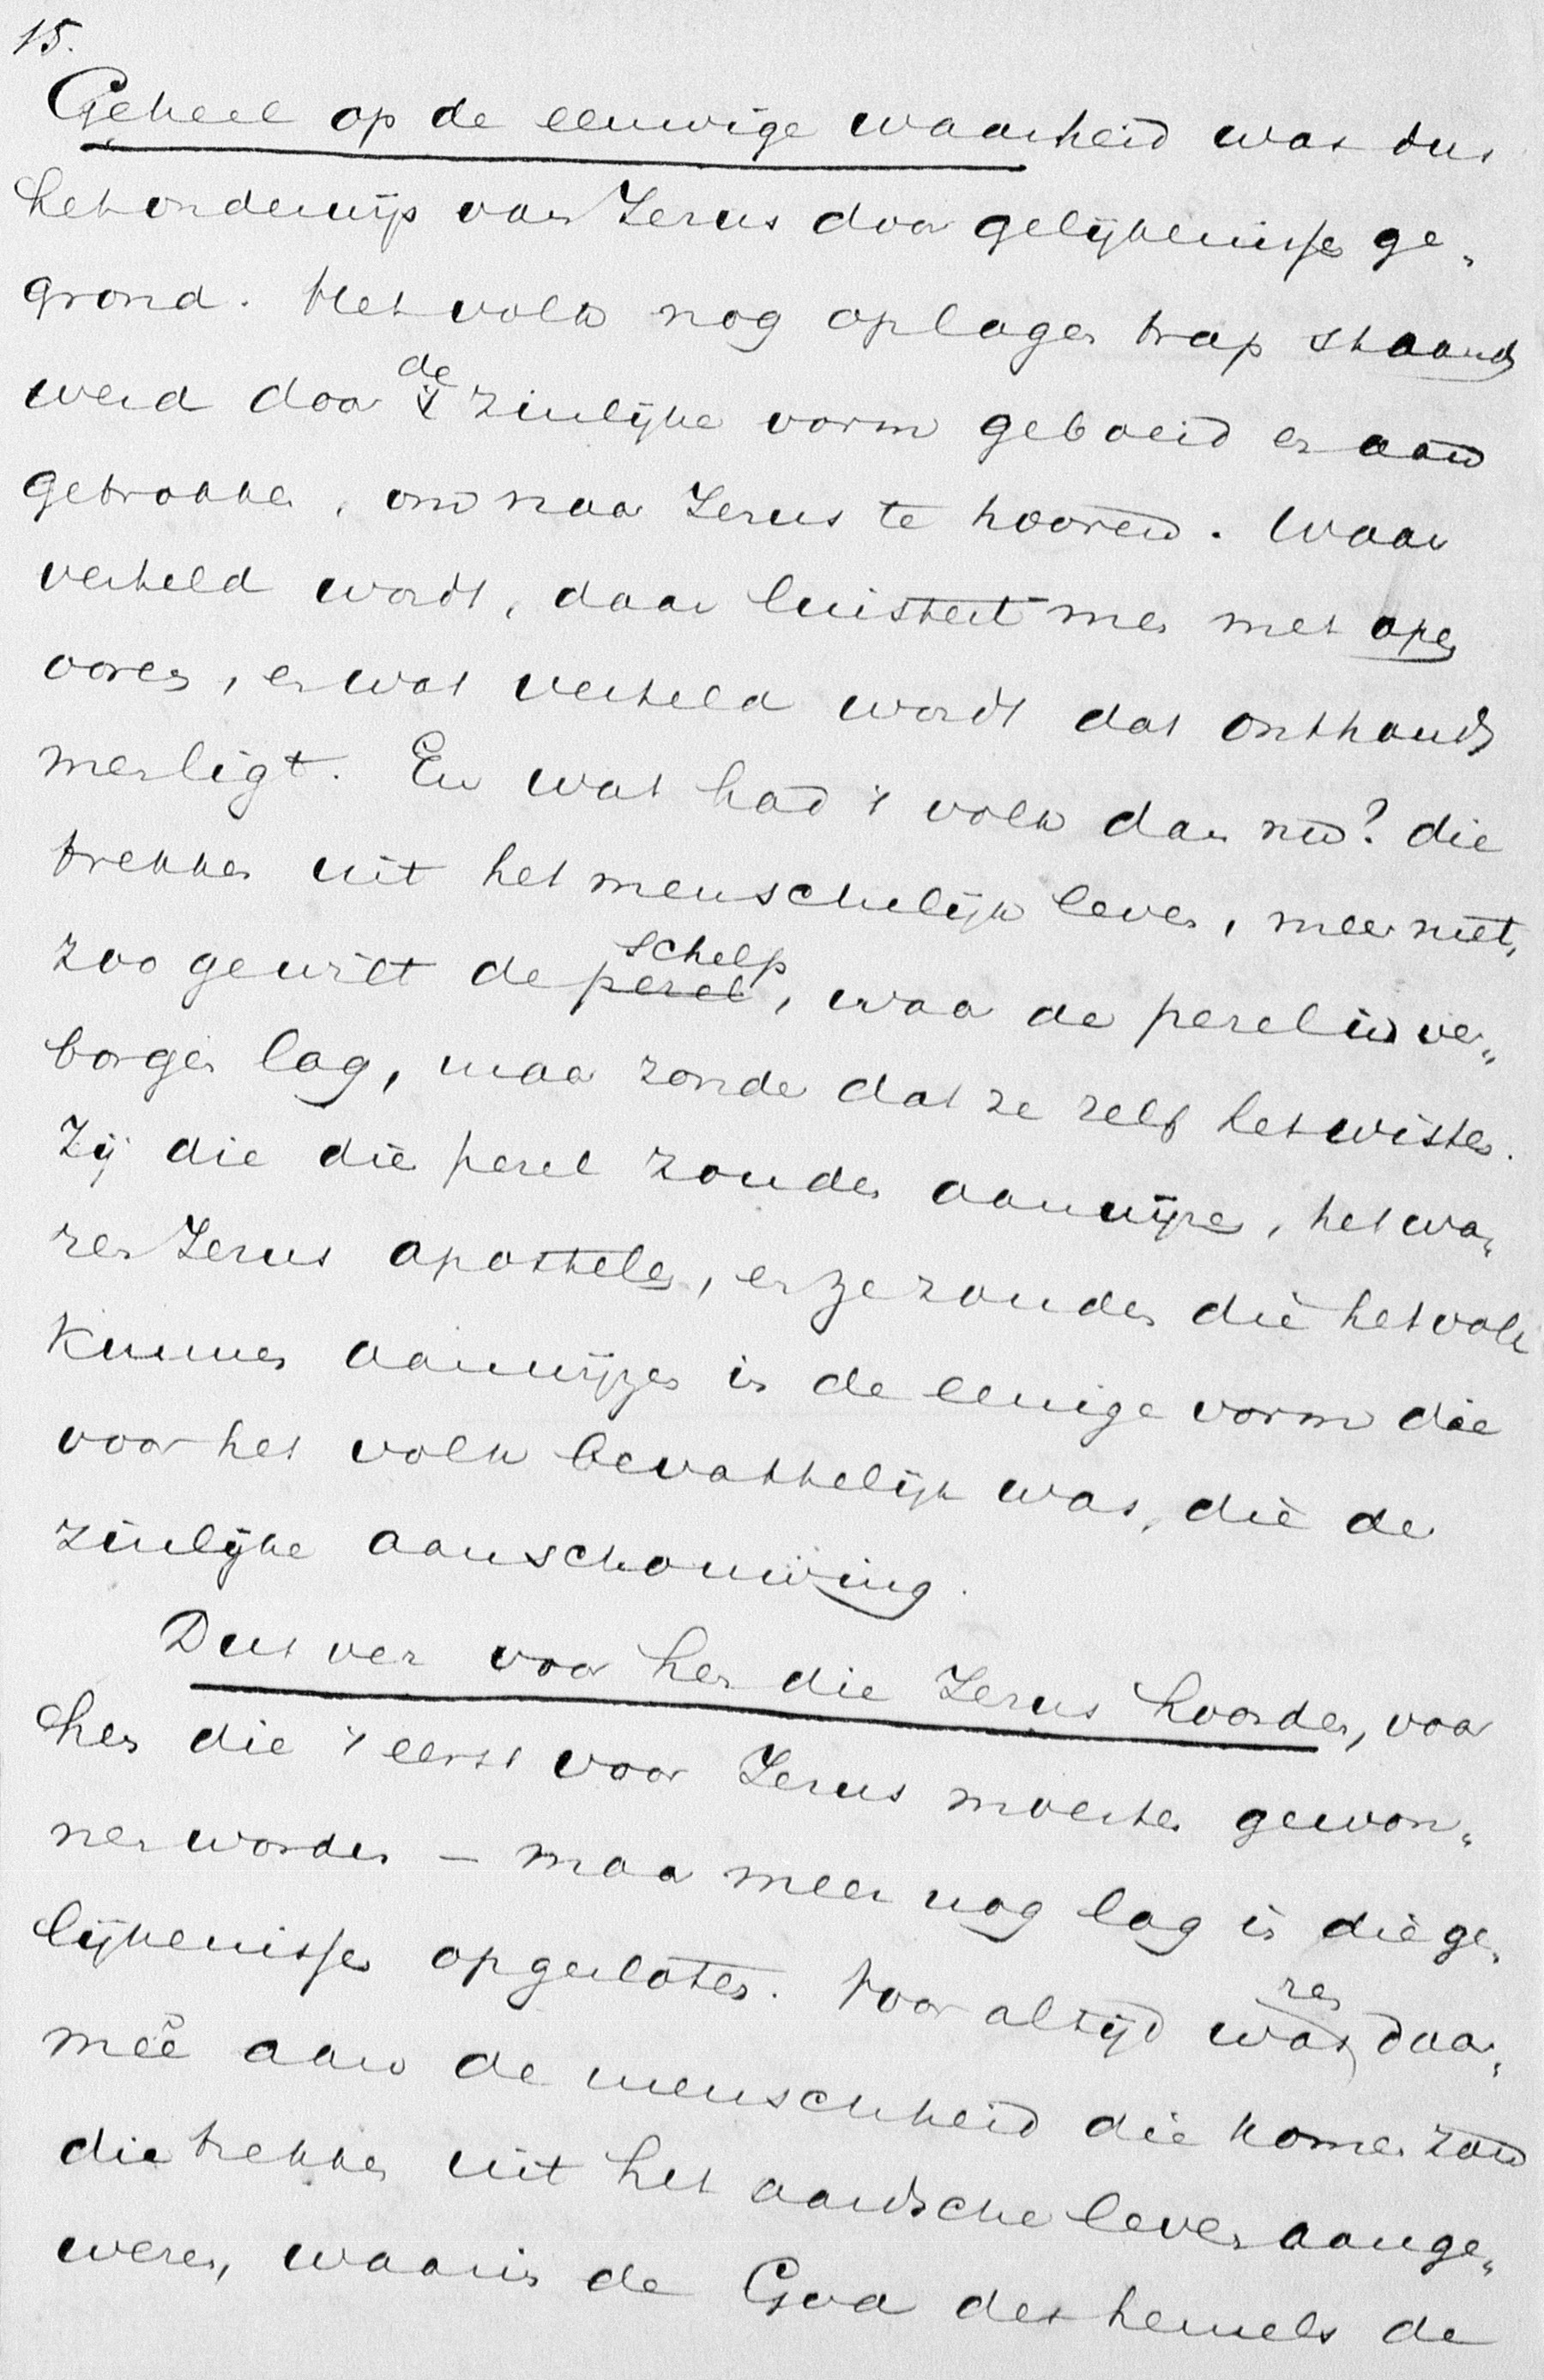 15.
Geheel op de eeuwige waarheid was dus
het onderwijs van Jezus door gelijkenissen ge„
grond. Het volk nog op lagen trap staand
werd door de zinlijke vorm geboeid en aan
getrokken, om naar Jezus te hooren. Waar
verteld wordt, daar luistert men met open
ooren, en wat verteld wordt dat onthoudt
men ligt. En wat had 't volk dan nu? die
trekken uit het menschelijk leven, meer niet,
zoo ge wilt de perel schelp, waar de perel in ver„
borgen lag, maar zonder dat ze zelf het wisten.
Zij die die perel zouden aanwijzen, het wa„
ren Jezus apostelen, en ze zouden die het volk
kunnen aanwijzen in de eenige vorm die
voor het volk bevattelijk was, die der
zinlijke aanschouwing.
Dus ver voor hen die Jezus hoorden, voor
hen die 't eerst voor Jezus moesten gewon„
nen worden – maar meer nog lag in die ge„
lijkenissen opgesloten. Voor altijd waren daar„
meê aan de menschheid die komen zou
die trekken uit het aardsche leven aange„
wezen, waarin de God des hemels de